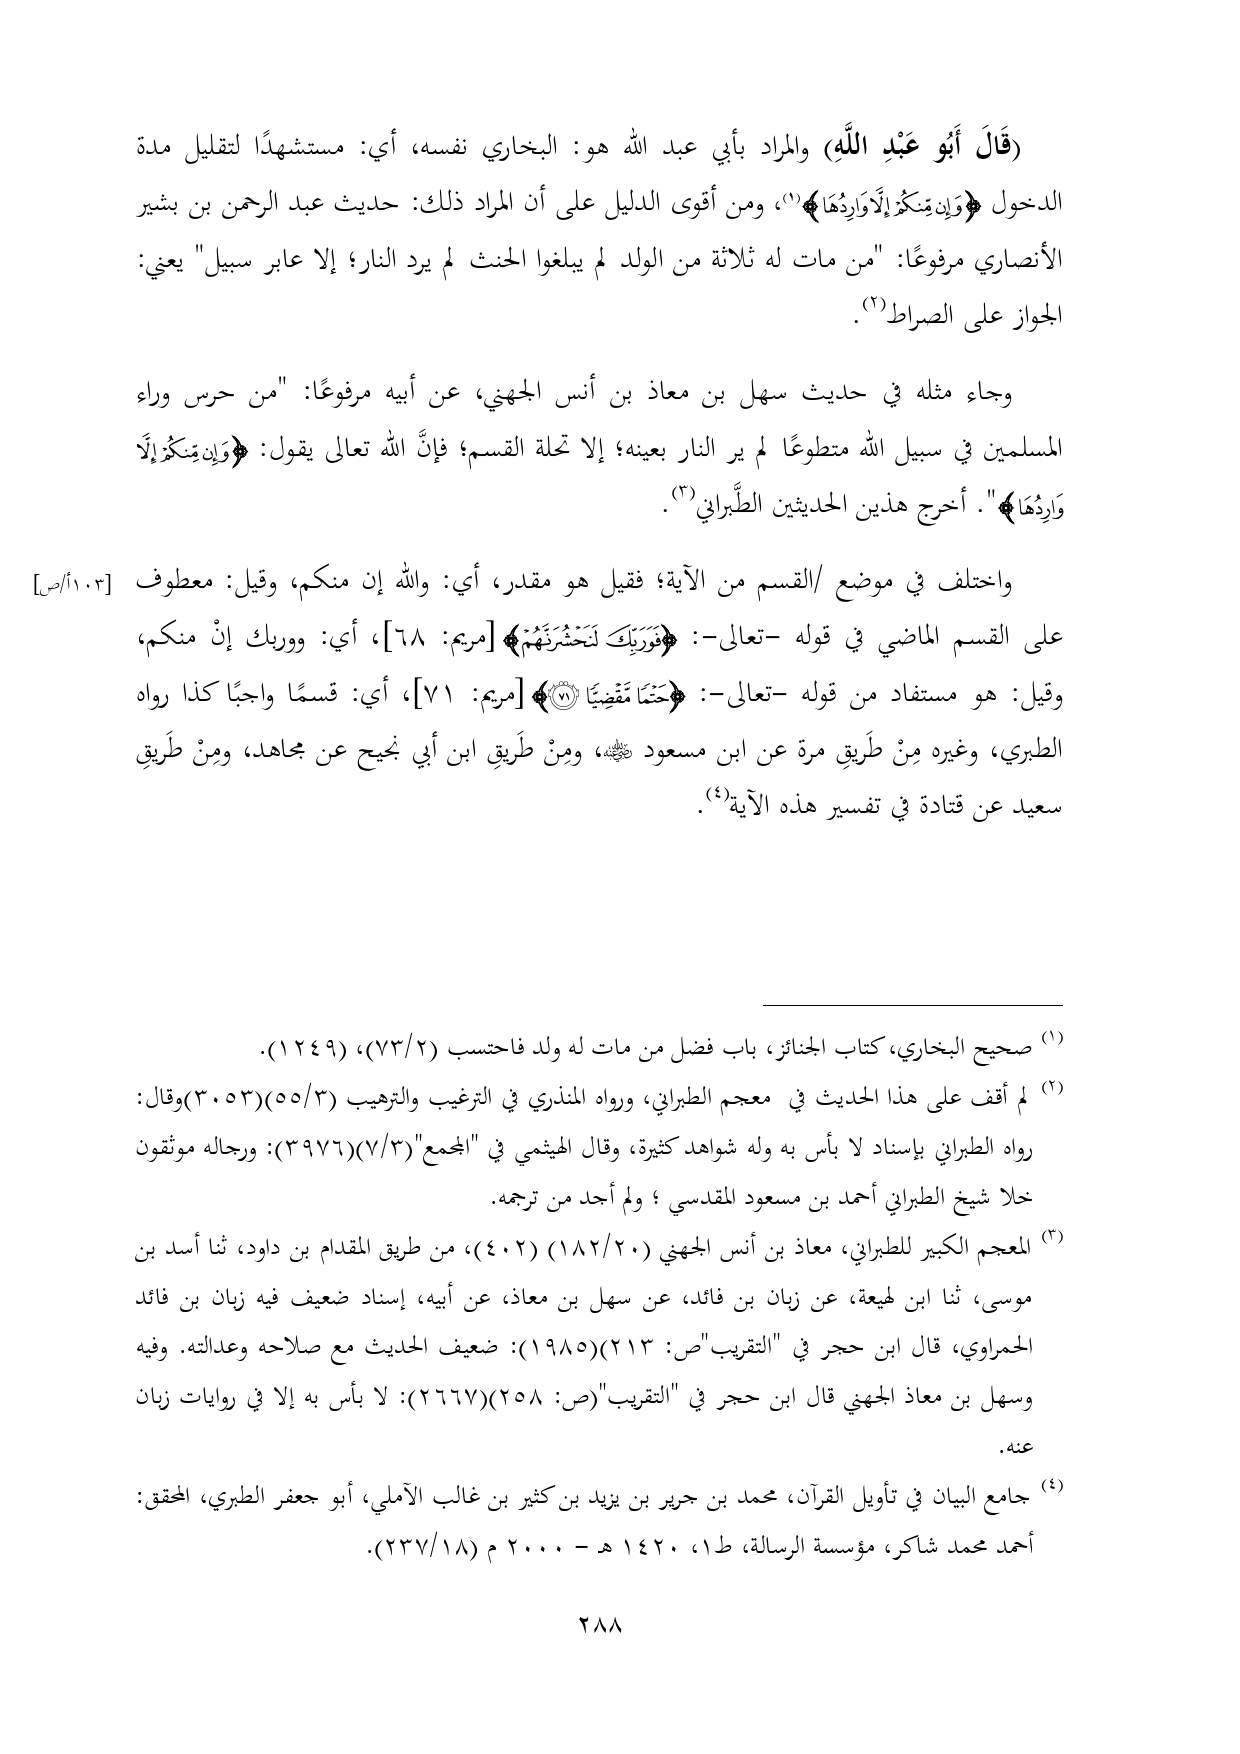 (قَالَ أَبُو عَبْدِ اللَّهِ) والمراد بأبي عبد الله هو: البخاري نفسه، أي: مستشهدًا لتقليل مدة
الدخول ﴿وَإِن مِّنكُمۡ إِلَّا وَارِدُهَا﴾(١)، ومن أقوى الدليل على أن المراد ذلك: حديث عبد الرحمن بن بشير
الأنصاري مرفوعًا: "من مات له ثلاثة من الولد لم يبلغوا الحنث لم يرد النار؛ إلا عابر سبيل" يعني:
الجواز على الصراط(٢).
وجاء مثله في حديث سهل بن معاذ بن أنس الجهني، عن أبيه مرفوعًا: "من حرس وراء
المسلمين في سبيل الله متطوعًا لم ير النار بعينه؛ إلا تحلة القسم؛ فإنَّ الله تعالى يقول: ﴿وَإِن مِّنكُمۡ إِلَّا
وَارِدُهَا﴾". أخرج هذين الحديثين الطَّبراني(٣).
واختلف في موضع /القسم من الآية؛ فقيل هو مقدر، أي: والله إن منكم، وقيل: معطوف [١٠٣أ/ص]
على القسم الماضي في قوله –تعالى–: ﴿فَوَرَبِّكَ لَنَحۡشُرَنَّهُمۡ﴾ [مريم: ٦٨]، أي: ووربك إنْ منكم،
وقيل: هو مستفاد من قوله –تعالى–: ﴿حَتۡمٗا مَّقۡضِيّٗا ٧١﴾ [مريم: ٧١]، أي: قسمًا واجبًا كذا رواه
الطبري، وغيره مِنْ طَريقِ مرة عن ابن مسعود ﷺ، ومِنْ طَريقِ ابن أبي نجيح عن مجاهد، ومِنْ طَريقِ
سعيد عن قتادة في تفسير هذه الآية(٤).
(١) صحيح البخاري، كتاب الجنائز، باب فضل من مات له ولد فاحتسب (٧٣/٢)، (١٢٤٩).
(٢) لم أقف على هذا الحديث في معجم الطبراني، ورواه المنذري في الترغيب والترهيب (٥٥/٣)(٣٠٥٣)وقال:
رواه الطبراني بإسناد لا بأس به وله شواهد كثيرة، وقال الهيثمي في "المجمع"(٧/٣)(٣٩٧٦): ورجاله موثقون
خلا شيخ الطبراني أحمد بن مسعود المقدسي ؛ ولم أجد من ترجمه.
(٣) المعجم الكبير للطبراني، معاذ بن أنس الجهني (١٨٢/٢٠) (٤٠٢)، من طريق المقدام بن داود، ثنا أسد بن
موسى، ثنا ابن لهيعة، عن زبان بن فائد، عن سهل بن معاذ، عن أبيه، إسناد ضعيف فيه زبان بن فائد
الحمراوي، قال ابن حجر في "التقريب"ص: ٢١٣)(١٩٨٥): ضعيف الحديث مع صلاحه وعدالته. وفيه
وسهل بن معاذ الجهني قال ابن حجر في "التقريب"(ص: ٢٥٨)(٢٦٦٧): لا بأس به إلا في روايات زبان
عنه.
(٤) جامع البيان في تأويل القرآن، محمد بن جرير بن يزيد بن كثير بن غالب الآملي، أبو جعفر الطبري، المحقق:
أحمد محمد شاكر، مؤسسة الرسالة، ط١، ١٤٢٠ هـ – ٢٠٠٠ م (٢٣٧/١٨).
٢٨٨